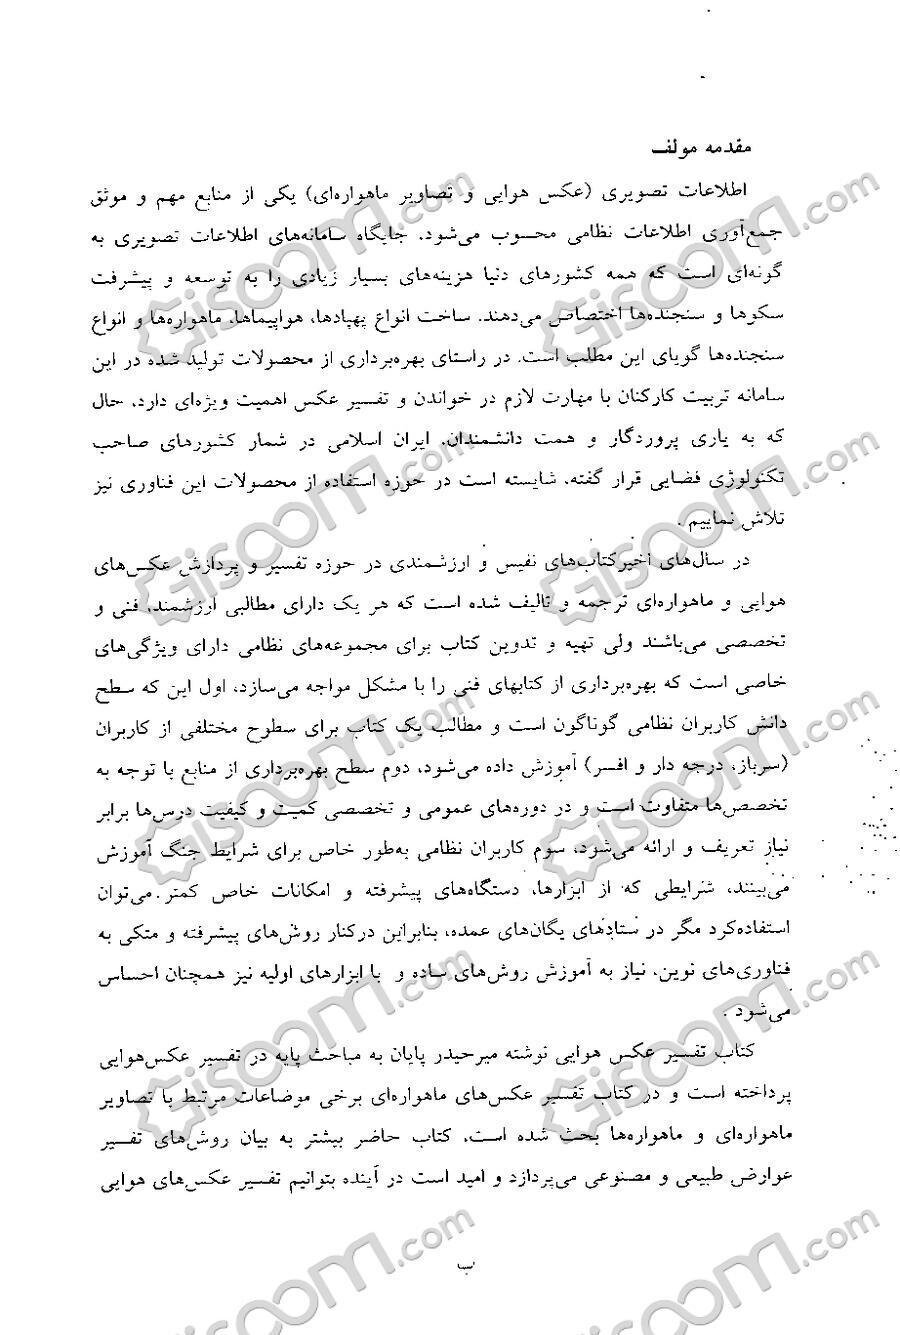 مقدمه مولف
اطلاعات تصویری (عکس هوایی و تصاویر ماهواره‌ای) یکی از منابع مهم و موثق
جمع‌آوری اطلاعات نظامی محسوب می‌شود. جایگاه سامانه‌های اطلاعات تصویری به
گونه‌ای است که همه کشورهای دنیا هزینه‌های بسیار زیادی را به توسعه و پیشرفت
سکوها و سنجنده‌ها اختصاص می‌دهند. ساخت انواع پهپادها، هواپیماها، ماهواره‌ها و انواع
سنجنده‌ها گویای این مطلب است. در راستای بهره‌برداری از محصولات تولید شده در این
سامانه تربیت کارکنان با مهارت لازم در خواندن و تفسیر عکس اهمیت ویژه‌ای دارد. حال
که به یاری پروردگار و همت دانشمندان، ایران اسلامی در شمار کشورهای صاحب
تکنولوژی فضایی قرار گفته، شایسته است در حوزه استفاده از محصولات این فناوری نیز
تلاش نماییم .
در سال‌های اخیرکتاب‌های نفیس و ارزشمندی در حوزه تفسیر و پردازش عکس‌های
هوایی و ماهواره‌ای ترجمه و تالیف شده است که هر یک دارای مطالبی ارزشمند، فنی و
تخصصی می‌باشند ولی تهیه و تدوین کتاب برای مجموعه‌های نظامی دارای ویژگی‌های
خاصی است که بهره‌برداری از کتابهای فنی را با مشکل مواجه می‌سازد، اول این که سطح
دانش کاربران نظامی گوناگون است و مطالب یک کتاب برای سطوح مختلفی از کاربران
(سرباز، درجه دار و افسر) آموزش داده می‌شود، دوم سطح بهره‌برداری از منابع با توجه به
تخصص‌ها متفاوت است و در دوره‌های عمومی و تخصصی کمیت و کیفیت درس‌ها برابر
نیاز تعریف و ارائه می‌شود، سوم کاربران نظامی به‌طور خاص برای شرایط جنگ آموزش
می‌بینند، شرایطی که از ابزارها، دستگاه‌های پیشرفته و امکانات خاص کمتر می‌توان
استفاده‌کرد مگر در ستادهای یگان‌های عمده، بنابراین درکنار روش‌های پیشرفته و متکی به
فناوری‌های نوین، نیاز به آموزش روش‌های ساده و با ابزارهای اولیه نیز همچنان احساس
می‌شود .
کتاب تفسیر عکس هوایی نوشته میرحیدر پایان به مباحث پایه در تفسیر عکس‌هوایی
پرداخته است و در کتاب تفسیر عکس‌های ماهواره‌ای برخی موضاعات مرتبط با تصاویر
ماهواره‌ای و ماهواره‌ها بحث شده است، کتاب حاضر بیشتر به بیان روش‌های تفسیر
عوارض طبیعی و مصنوعی می‌پردازد و امید است در آینده بتوانیم تفسیر عکس‌های هوایی
ب
Giscoom.com
Giscoom.com
Giscoom.com
Giscoom.com
Giscoom.com
Giscoom.com
Giscoom.com
Giscoom.com
Giscoom.com
Giscoom.com